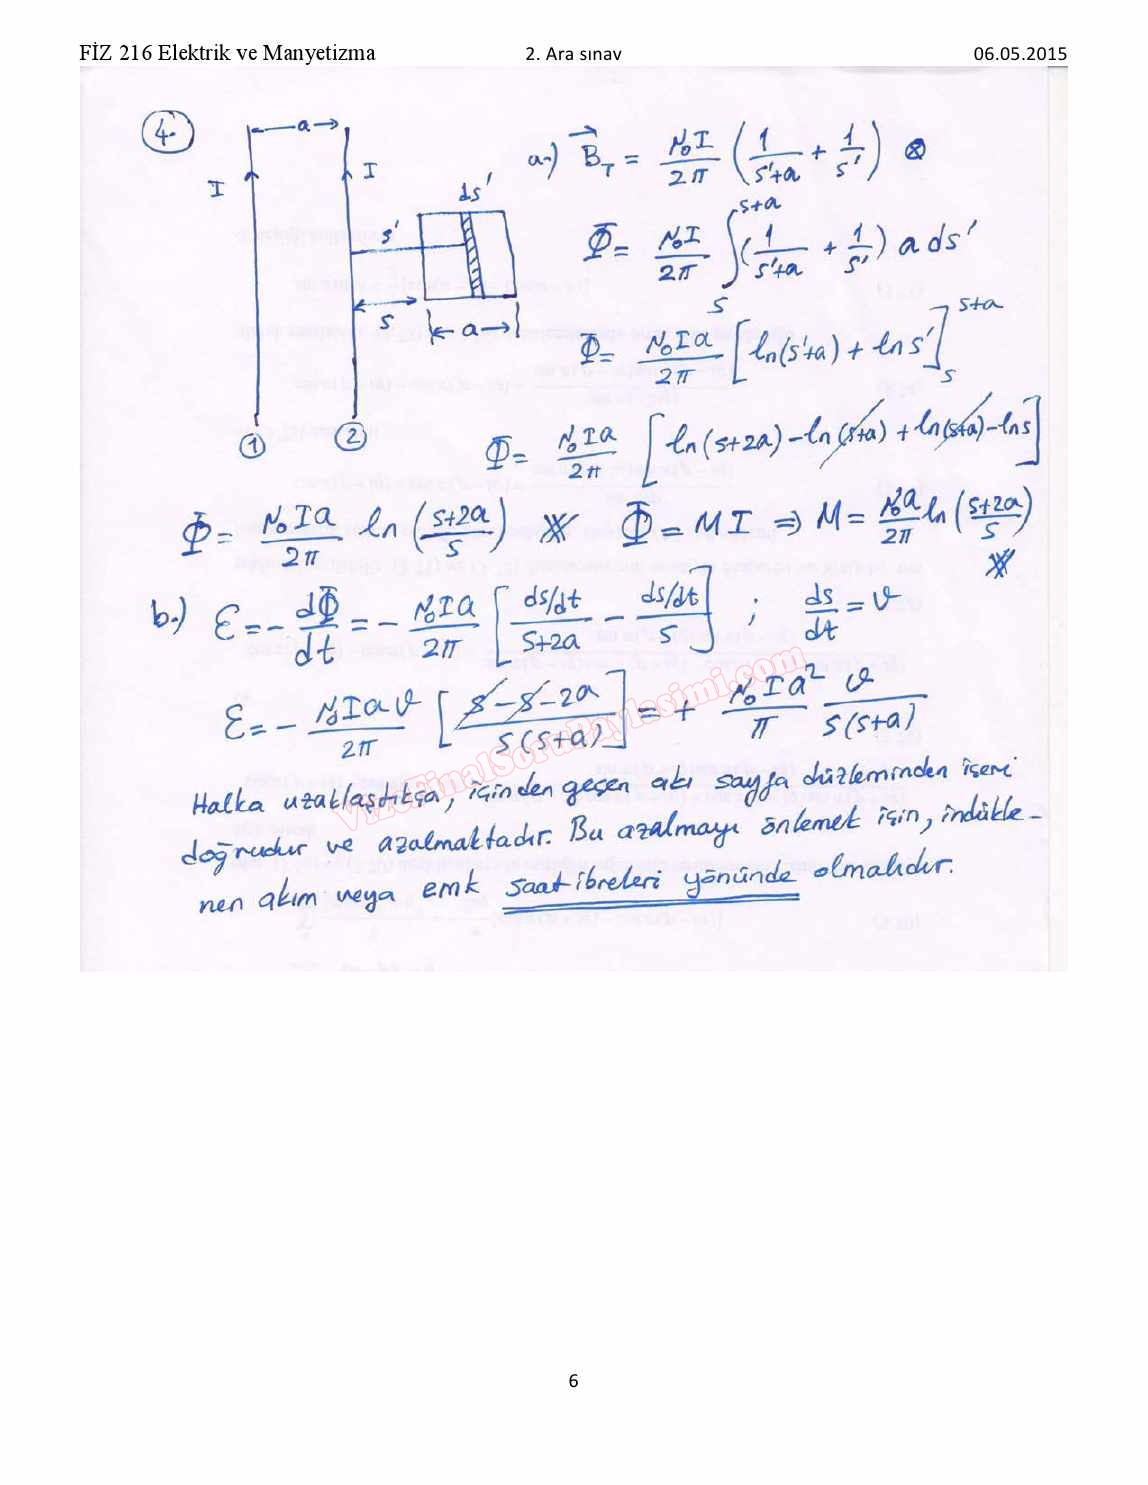 FİZ 216 Elektrik ve Manyetizma 2. Ara sınav 06.05.2015
4.
a
I
I
ds'
s'
s
a
1
2
a-) B⃗_T = μ₀I/2π (1/(s'+a) + 1/s') ⊗
Φ = μ₀I/2π ∫_s^{s+a} (1/(s'+a) + 1/s') a ds'
Φ = μ₀Ia/2π [ln(s'+a) + ln s']_s^{s+a}
Φ = μ₀Ia/2π [ln(s+2a) - ln(s+a) + ln(s+a) - ln s]
Φ = μ₀Ia/2π ln((s+2a)/s) Φ = MI ⇒ M = μ₀a/2π ln((s+2a)/s)
b-) Ɛ = - dΦ/dt = - μ₀Ia/2π [(ds/dt)/(s+2a) - (ds/dt)/s] ; ds/dt = v
Ɛ = - μ₀Iav/2π [(s-s-2a)/(s(s+a))] = + μ₀Ia²/π v/(s(s+a))
Halka uzaklaştıkça, içinden geçen akı sayfa düzleminden içeri
doğrudur ve azalmaktadır. Bu azalmayı önlemek için, indükle-
nen akım veya emk saat ibreleri yönünde olmalıdır.
VizeFinalSoruPaylasimi.com
6